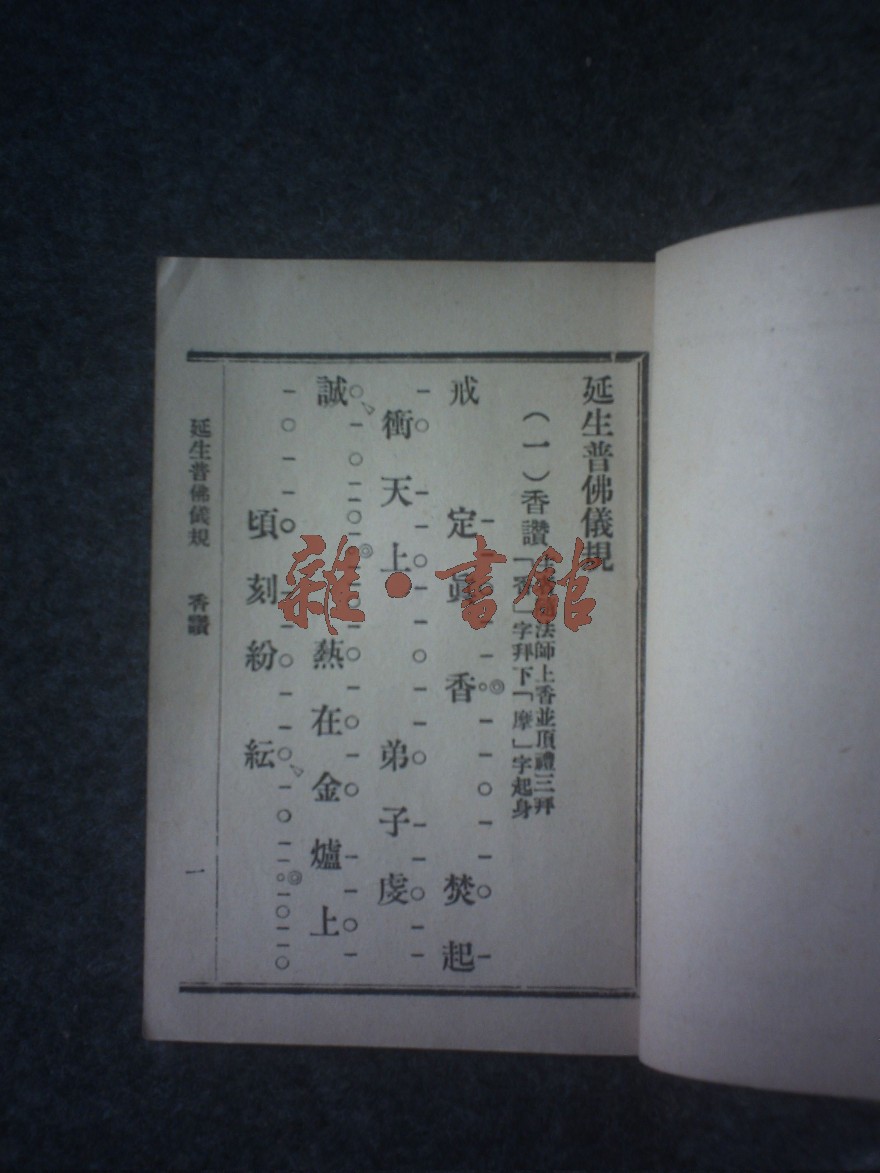 延生普佛儀規
(一)香讚
法師上香並頂禮三拜
「香」字拜下「摩」字起身
戒定眞香焚起
衝天上弟子虔
誠熱在金爐上
頃刻紛紜
延生普佛儀規 香讚
一
雜·書館